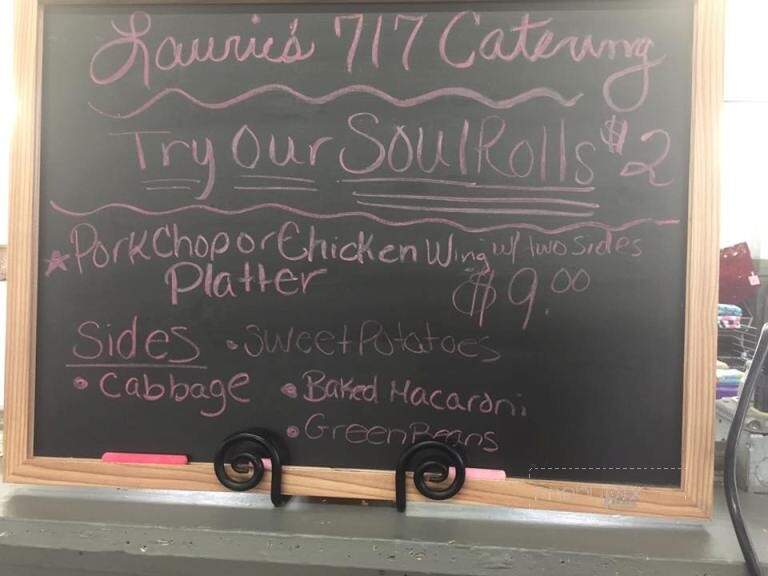 Laurie's 717 Catering
Try Our SoulRolls $2
Pork Chop or Chicken Wing w/ two sides
Platter $9.00
Sides • Sweet Potatoes
• Cabbage • Baked Macaroni
• Green Beans